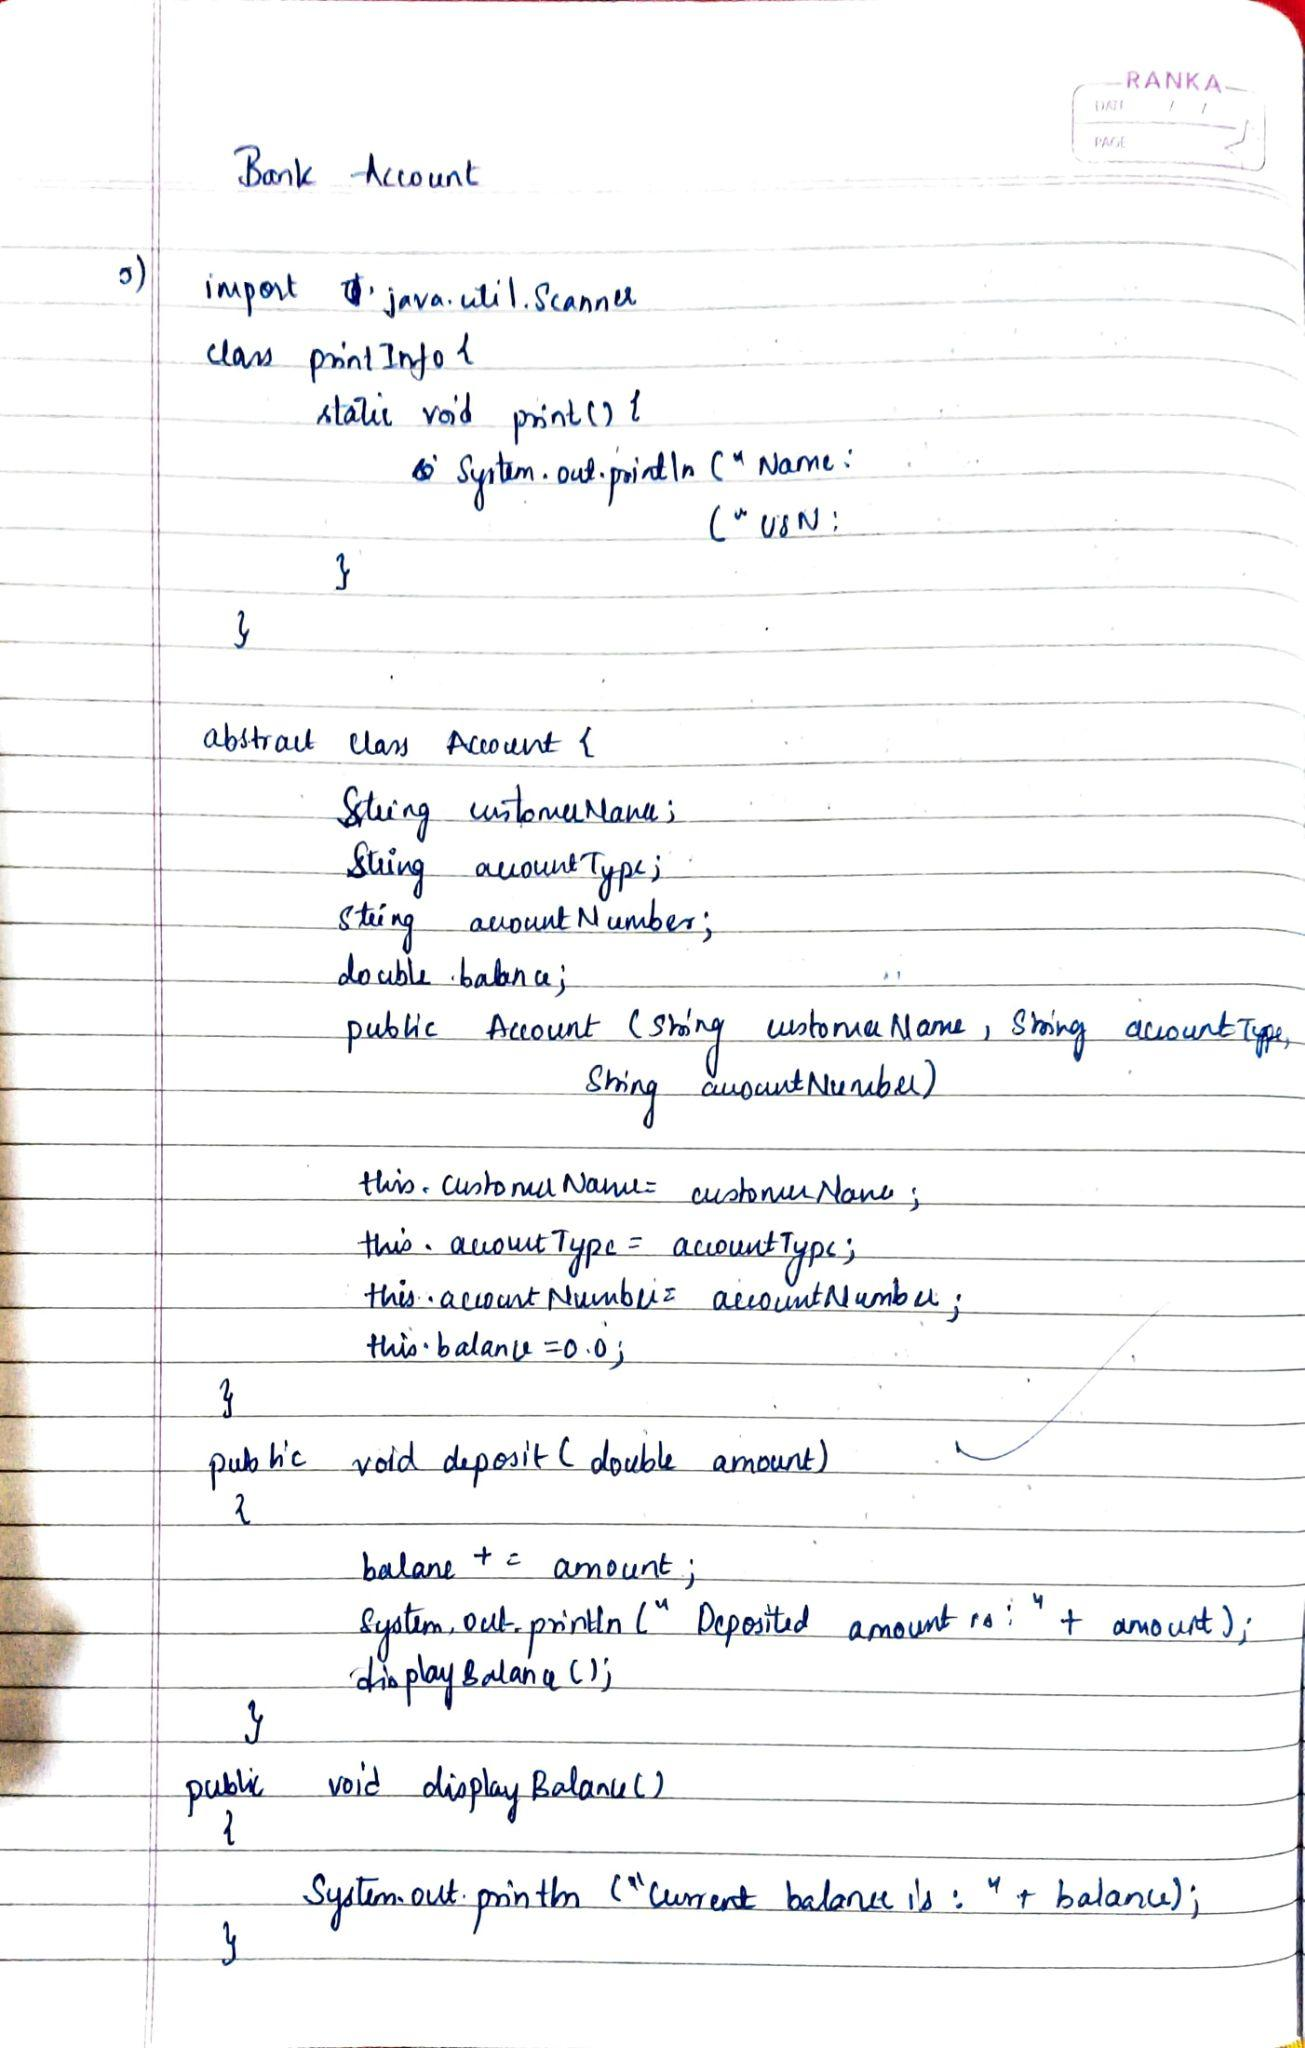 RANKA
DATE / /
PAGE
Bank Account
5) import java.util.Scanner
class printInfo {
static void print() {
System.out.println (" Name :
(" USN :
}
}
abstract class Account {
String customerName;
String accountType;
String accountNumber;
double balance;
public Account (String customerName, String accountType,
String accountNumber)
this.customerName = customerName;
this.accountType = accountType;
this.accountNumber = accountNumber;
this.balance = 0.0;
}
public void deposit ( double amount)
{
balane += amount;
System.out.println (" Deposited amount is : " + amount);
displayBalance ();
}
public void displayBalance()
{
System.out.println ("Current balance is : " + balance);
}